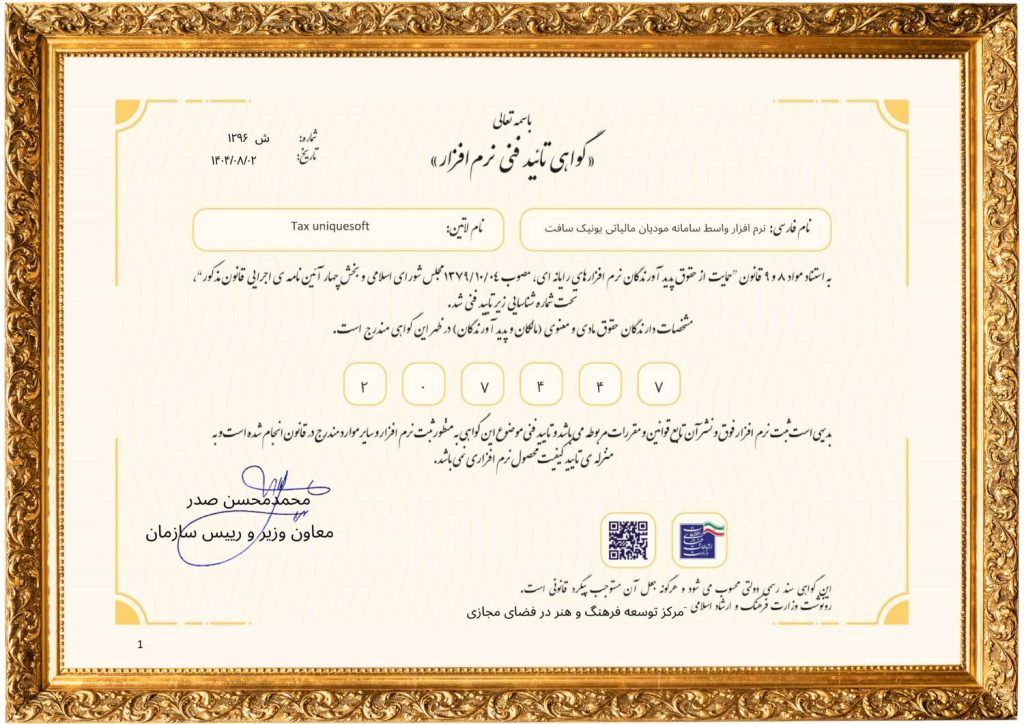 باسمه تعالی
«گواهی تائید فنی نرم افزار»
شماره: ش ۱۲۹۶
تاریخ: ۱۴۰۴/۰۸/۰۲
نام فارسی: نرم افزار واسط سامانه مودیان مالیاتی یونیک سافت
نام لاتین: Tax uniquesoft
به استناد مواد ۸ و ۹ قانون "حمایت از حقوق پدید آورندگان نرم افزارهای رایانه ای، مصوب ۱۳۷۹/۱۰/۰۴ مجلس شورای اسلامی و بخش چهار آئین نامه ی اجرایی قانون مذکور"،
تحت شماره شناسایی زیر تایید فنی شد.
مشخصات دارندگان حقوق مادی و معنوی (مالکان و پدید آورندگان) در ظهر این گواهی مندرج است.
۲ ۰ ۷ ۴ ۴ ۷
بدیهی است ثبت نرم افزار فوق و نشر آن تابع قوانین و مقررات مربوطه می باشد و تایید فنی موضوع این گواهی به منظور ثبت نرم افزار و سایر موارد مندرج در قانون انجام شده است و به
منزله ی تایید کیفیت محصول نرم افزاری نمی باشد.
محمدمحسن صدر
معاون وزیر و رییس سازمان
این گواهی سند رسمی دولتی محسوب می شود و هرگونه جعل آن مستوجب پیگرد قانونی است.
رونوشت وزارت فرهنگ و ارشاد اسلامی -مرکز توسعه فرهنگ و هنر در فضای مجازی
1